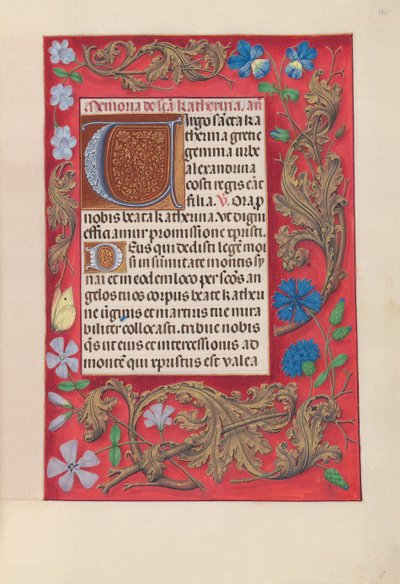 Memoria de sca Katherina. an
Virgo sca et ka
therina grene
gemma urbe
alexandrina
costi regis erat
filia. V. Ora p
nobis beata katherina ut digni
efficiamur promissione xpristi.
Deus qui dedisti legē moi
si in sūmitate montis sy
nai et in eodem loco per scōs an
gelos tuos corpus beate katheri
ne v̄ginis et martiris tue mira
biliter collocasti. tribue nobis
q̄s ut eius et intercessionis ad
montē qui xpristus est valea